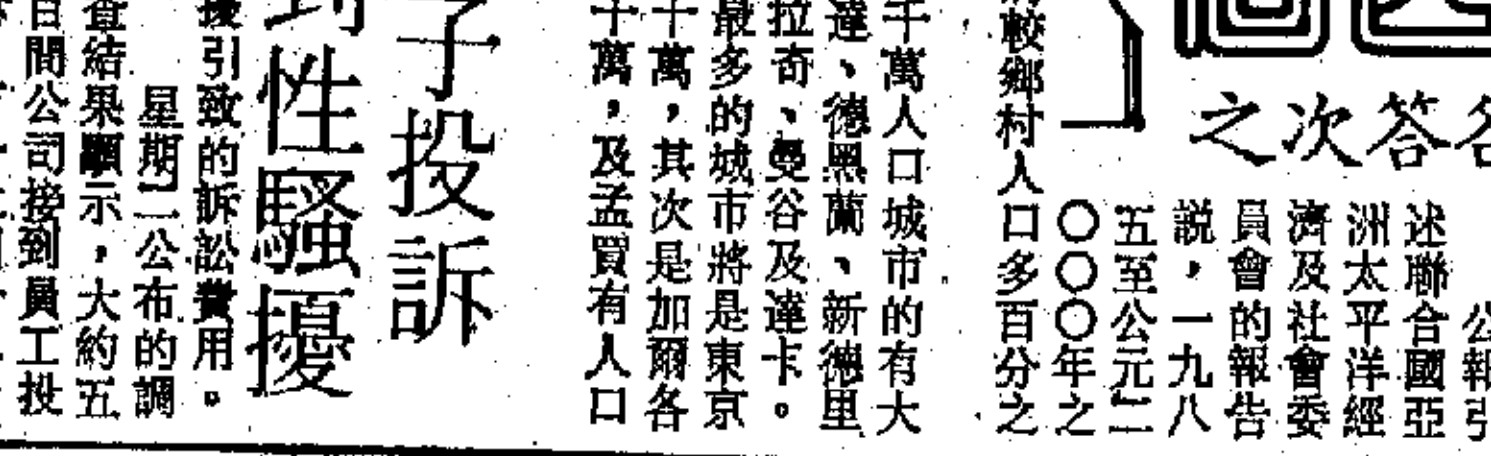 之次答
公報引
述聯合國亞
洲太平洋經
濟及社會委
員會的報告
說，一九八
五至公元二
〇〇〇年之
較鄉村人口多百分之
千萬人口城市的有大
達、德黑蘭、新德里
拉奇、曼谷及達卡。
最多的城市將是東京
十萬，其次是加爾各
十萬，及孟買有人口
子投訴
性騷擾
擾引致的訴訟費用。
星期二公布的調
查結果顯示，大約五
日間公司接到員工投